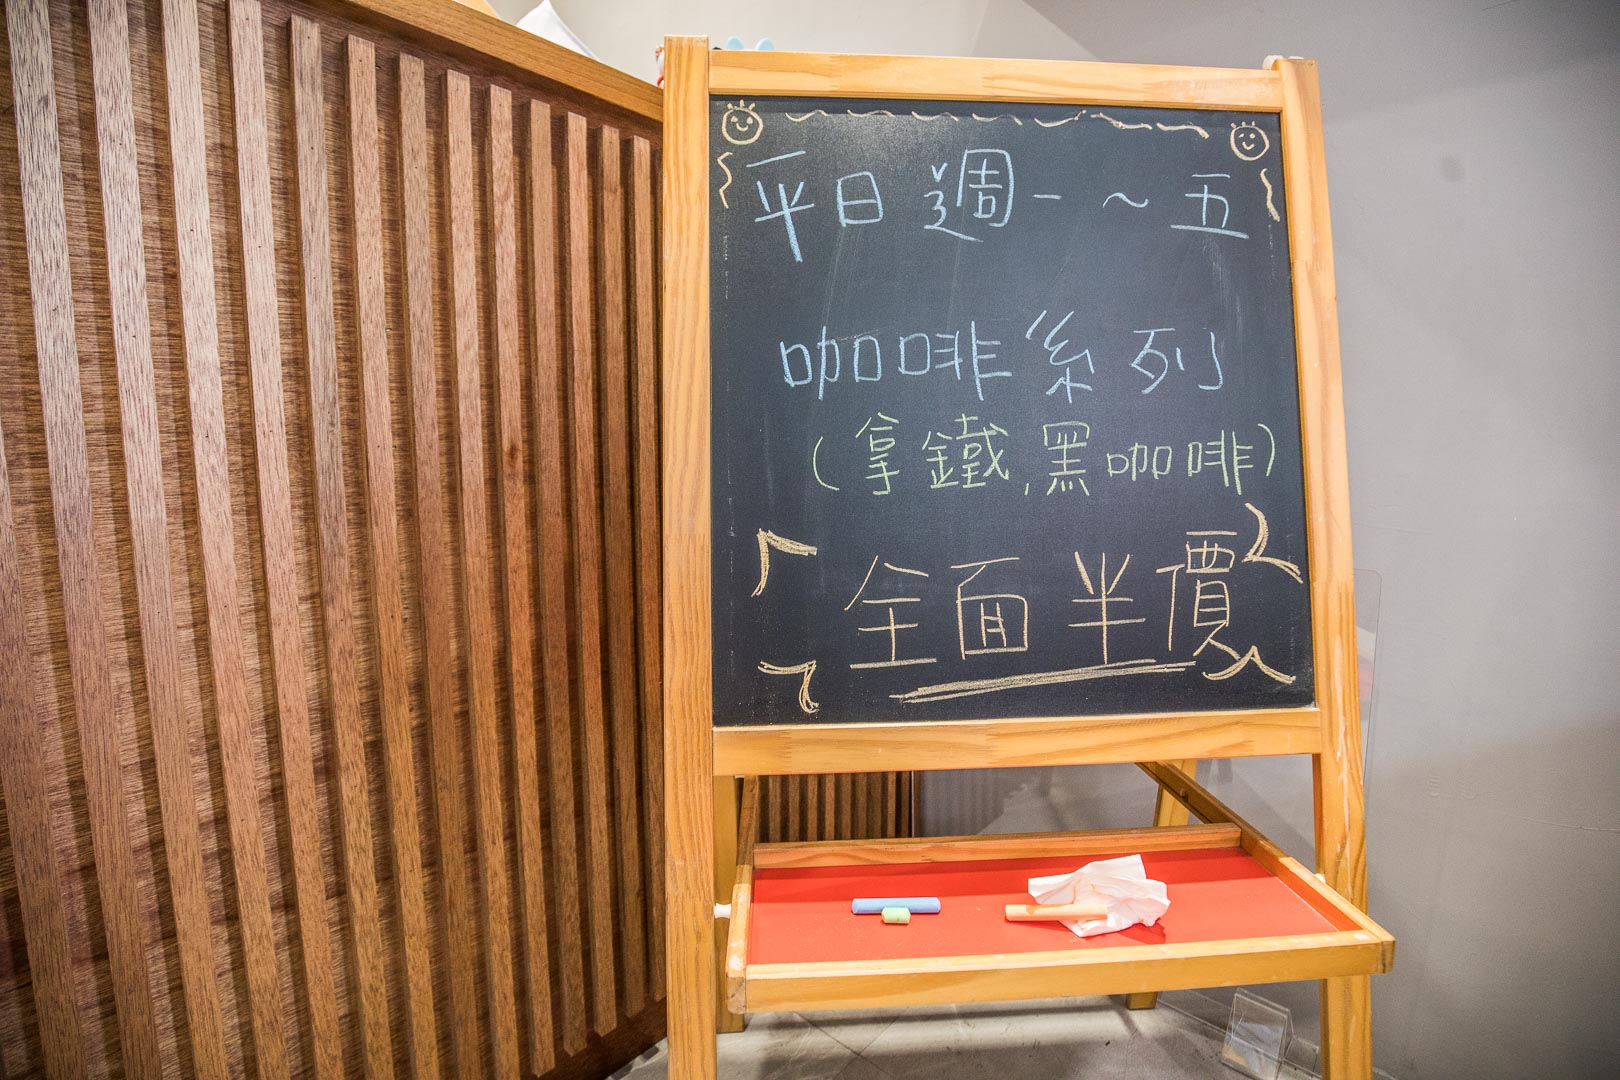 平日週一~五
咖啡系列
(拿鐵,黑咖啡)
全面半價